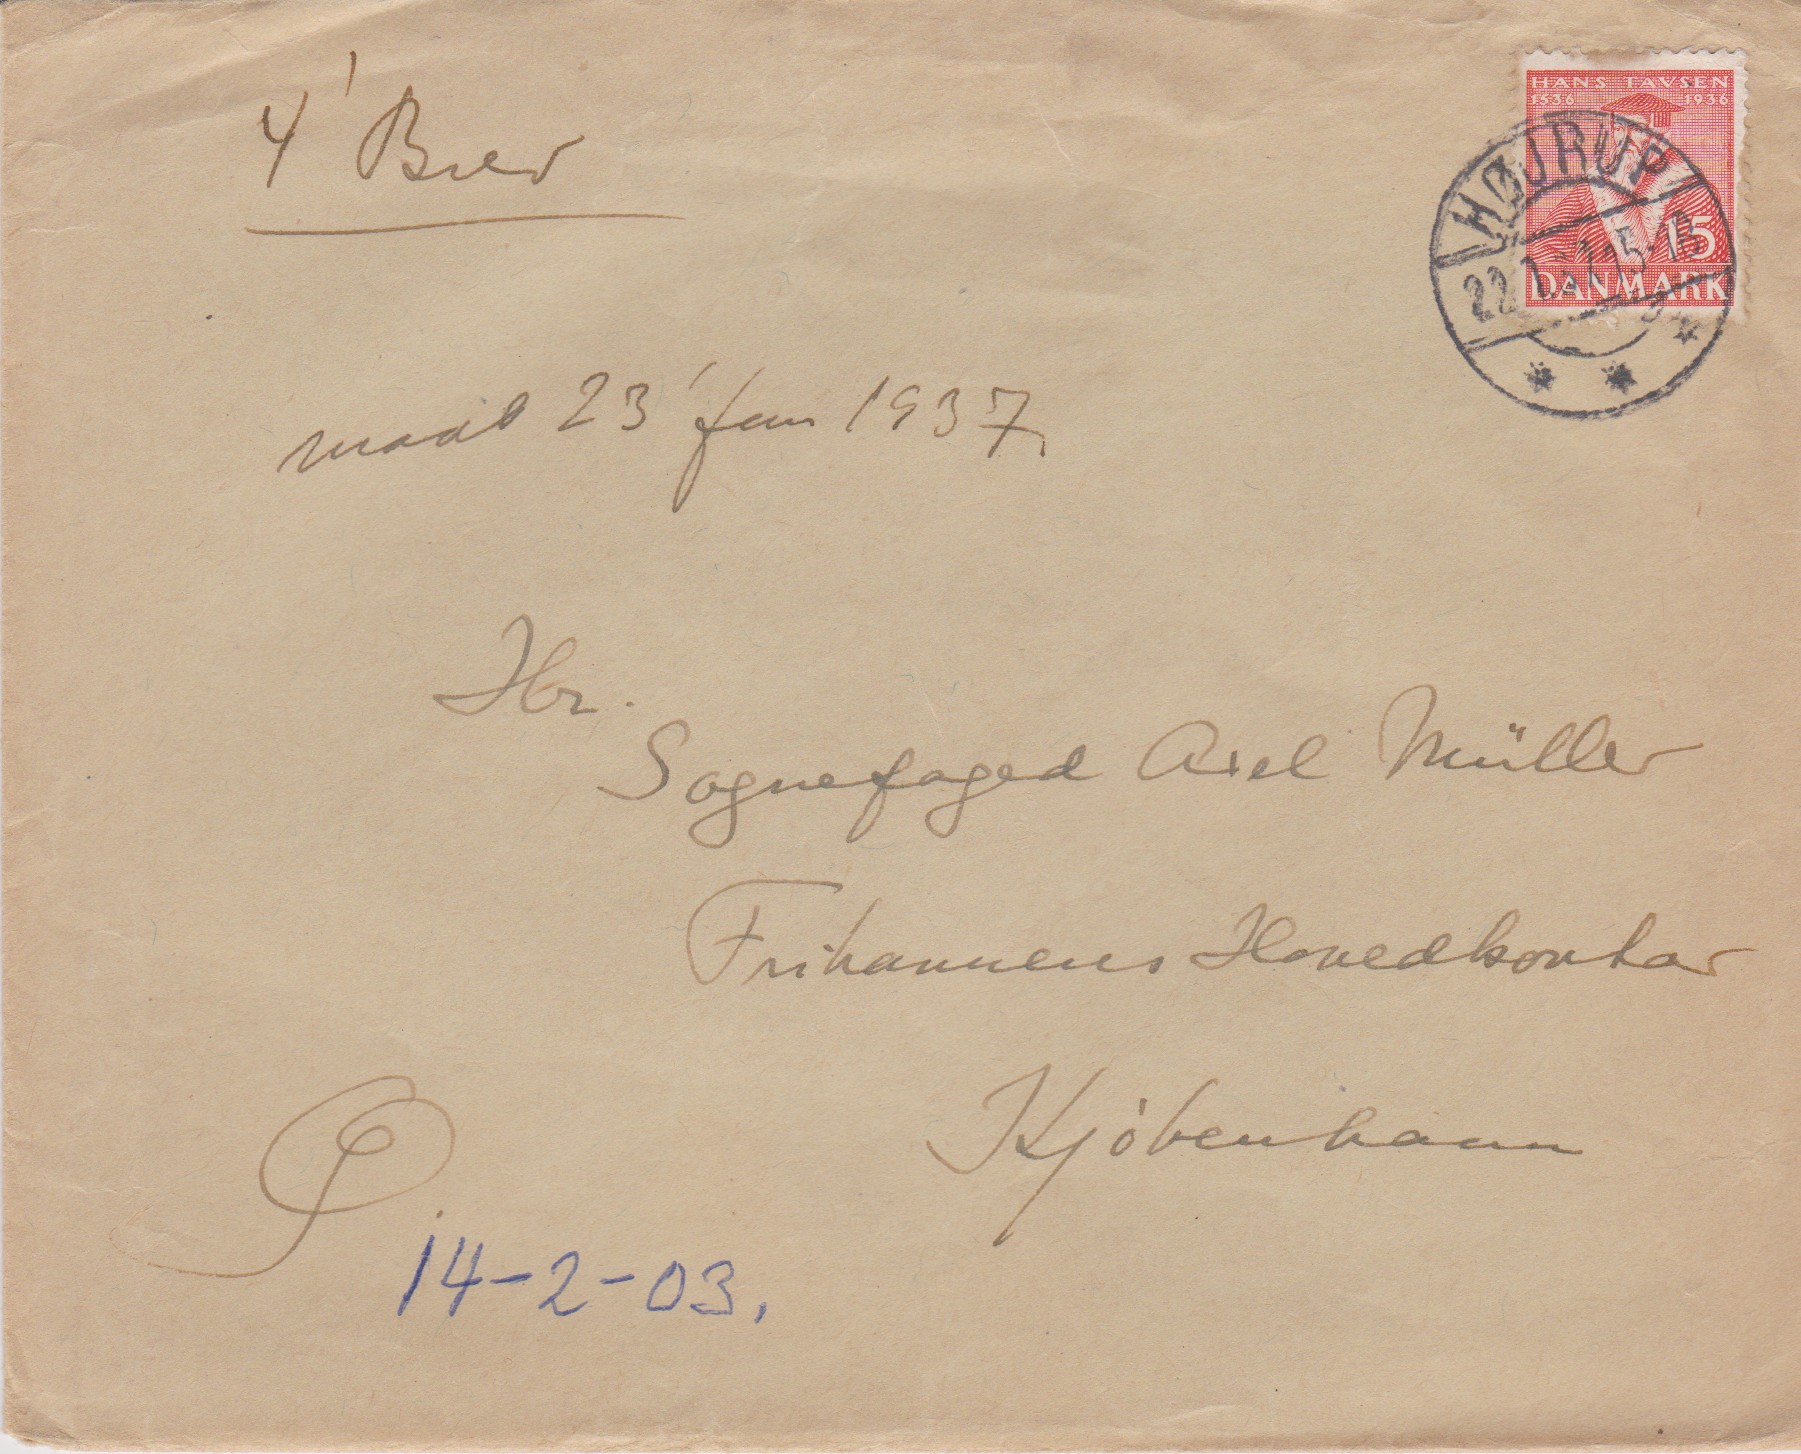 4' Brev
HANS TAVSEN
1536 1936
HØJRUP
22.1.37.15-18
15
DANMARK
23' Jan 1937.
Hr.
Sognefoged Axel Müller
Frihavnens Hovedkontor
Kjóbenhavn
14-2-03.